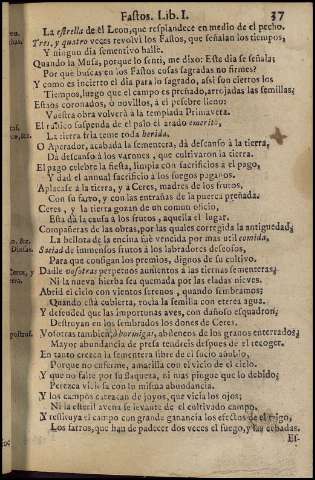 Fastos. Lib. I. 37
La estrella de el Leon, que resplandece en medio de el pecho.
Tres, y quatro veces revolvì los Fastos, que señalan los tiempos,
Y ningun dia sementivo halle.
Quando la Musa, porque lo sentì, me dixo: Este dia se señala:
Por què buscas en los Fastos cosas sagradas no firmes?
Y como es incierto el dia para lo sagrado, assi son ciertos los
Tiempos, luego que el campo es preñado, arrojadas las semillas;
Estàos coronados, ò novillos, à el pesebre lleno:
Vuestra obra volverà à la templada Primavera.
El rustico suspenda de el palo èl arado emerito,
La tierra fria teme toda herida.
O Aperador, acabada la sementera, dà descanso à la tierra,
Dà descanso à los varones, que cultivaron la tierra.
El pago celebre la fiesta, limpia con sacrificios a el pago,
Y dad el annual sacrificio à los fuegos paganos.
Aplacase à la tierra, y à Ceres, madres de los frutos,
Con su farro, y con las entrañas de la puerca preñada.
Ceres, y la tierra gozan de un comun oficio,
Esta dà la causa à los frutos, aquella el lugar.
Compañeras de las obras, por las quales corregida la antiguedad,
La bellota de la encina fuè vencida por mas util comida,
Saciad de immensos frutos à los labradores deseosos,
Para que consigan los premios, dignos de su cultivo.
Dadle vosotras perpetuos aumentos à las tiernas sementeras,
Ni la nueva hierba sea quemada por las eladas nieves.
Abrid el cielo con vientos serenos, quando sembramos;
Quando està cubierta, rocia la semilla con eterea agua.
Y defended que las importunas aves, con dañoso esquadron,
Destruyan en los sembrados los dones de Ceres.
Vosotras tambien, ò hormigas, absteneos de los granos enterrados,
Mayor abundancia de presa tendreis despues de el recoger.
En tanto crezca la sementera libre de el sucio añublo,
Porque no enferme, amarilla con el vicio de el cielo.
Y que no falte por su flaqueza, ni mas pingue que lo debido;
Perezca viciosa con su misma abundancia.
Y los campos carezcan de joyos, que vicia los ojos;
Ni la esteril avena se levante de el cultivado campo.
Y restituya el campo con grande ganancia los efectos de el trigo,
Los farros, que han de padecer dos veces el fuego, y las cebadas.
Es-